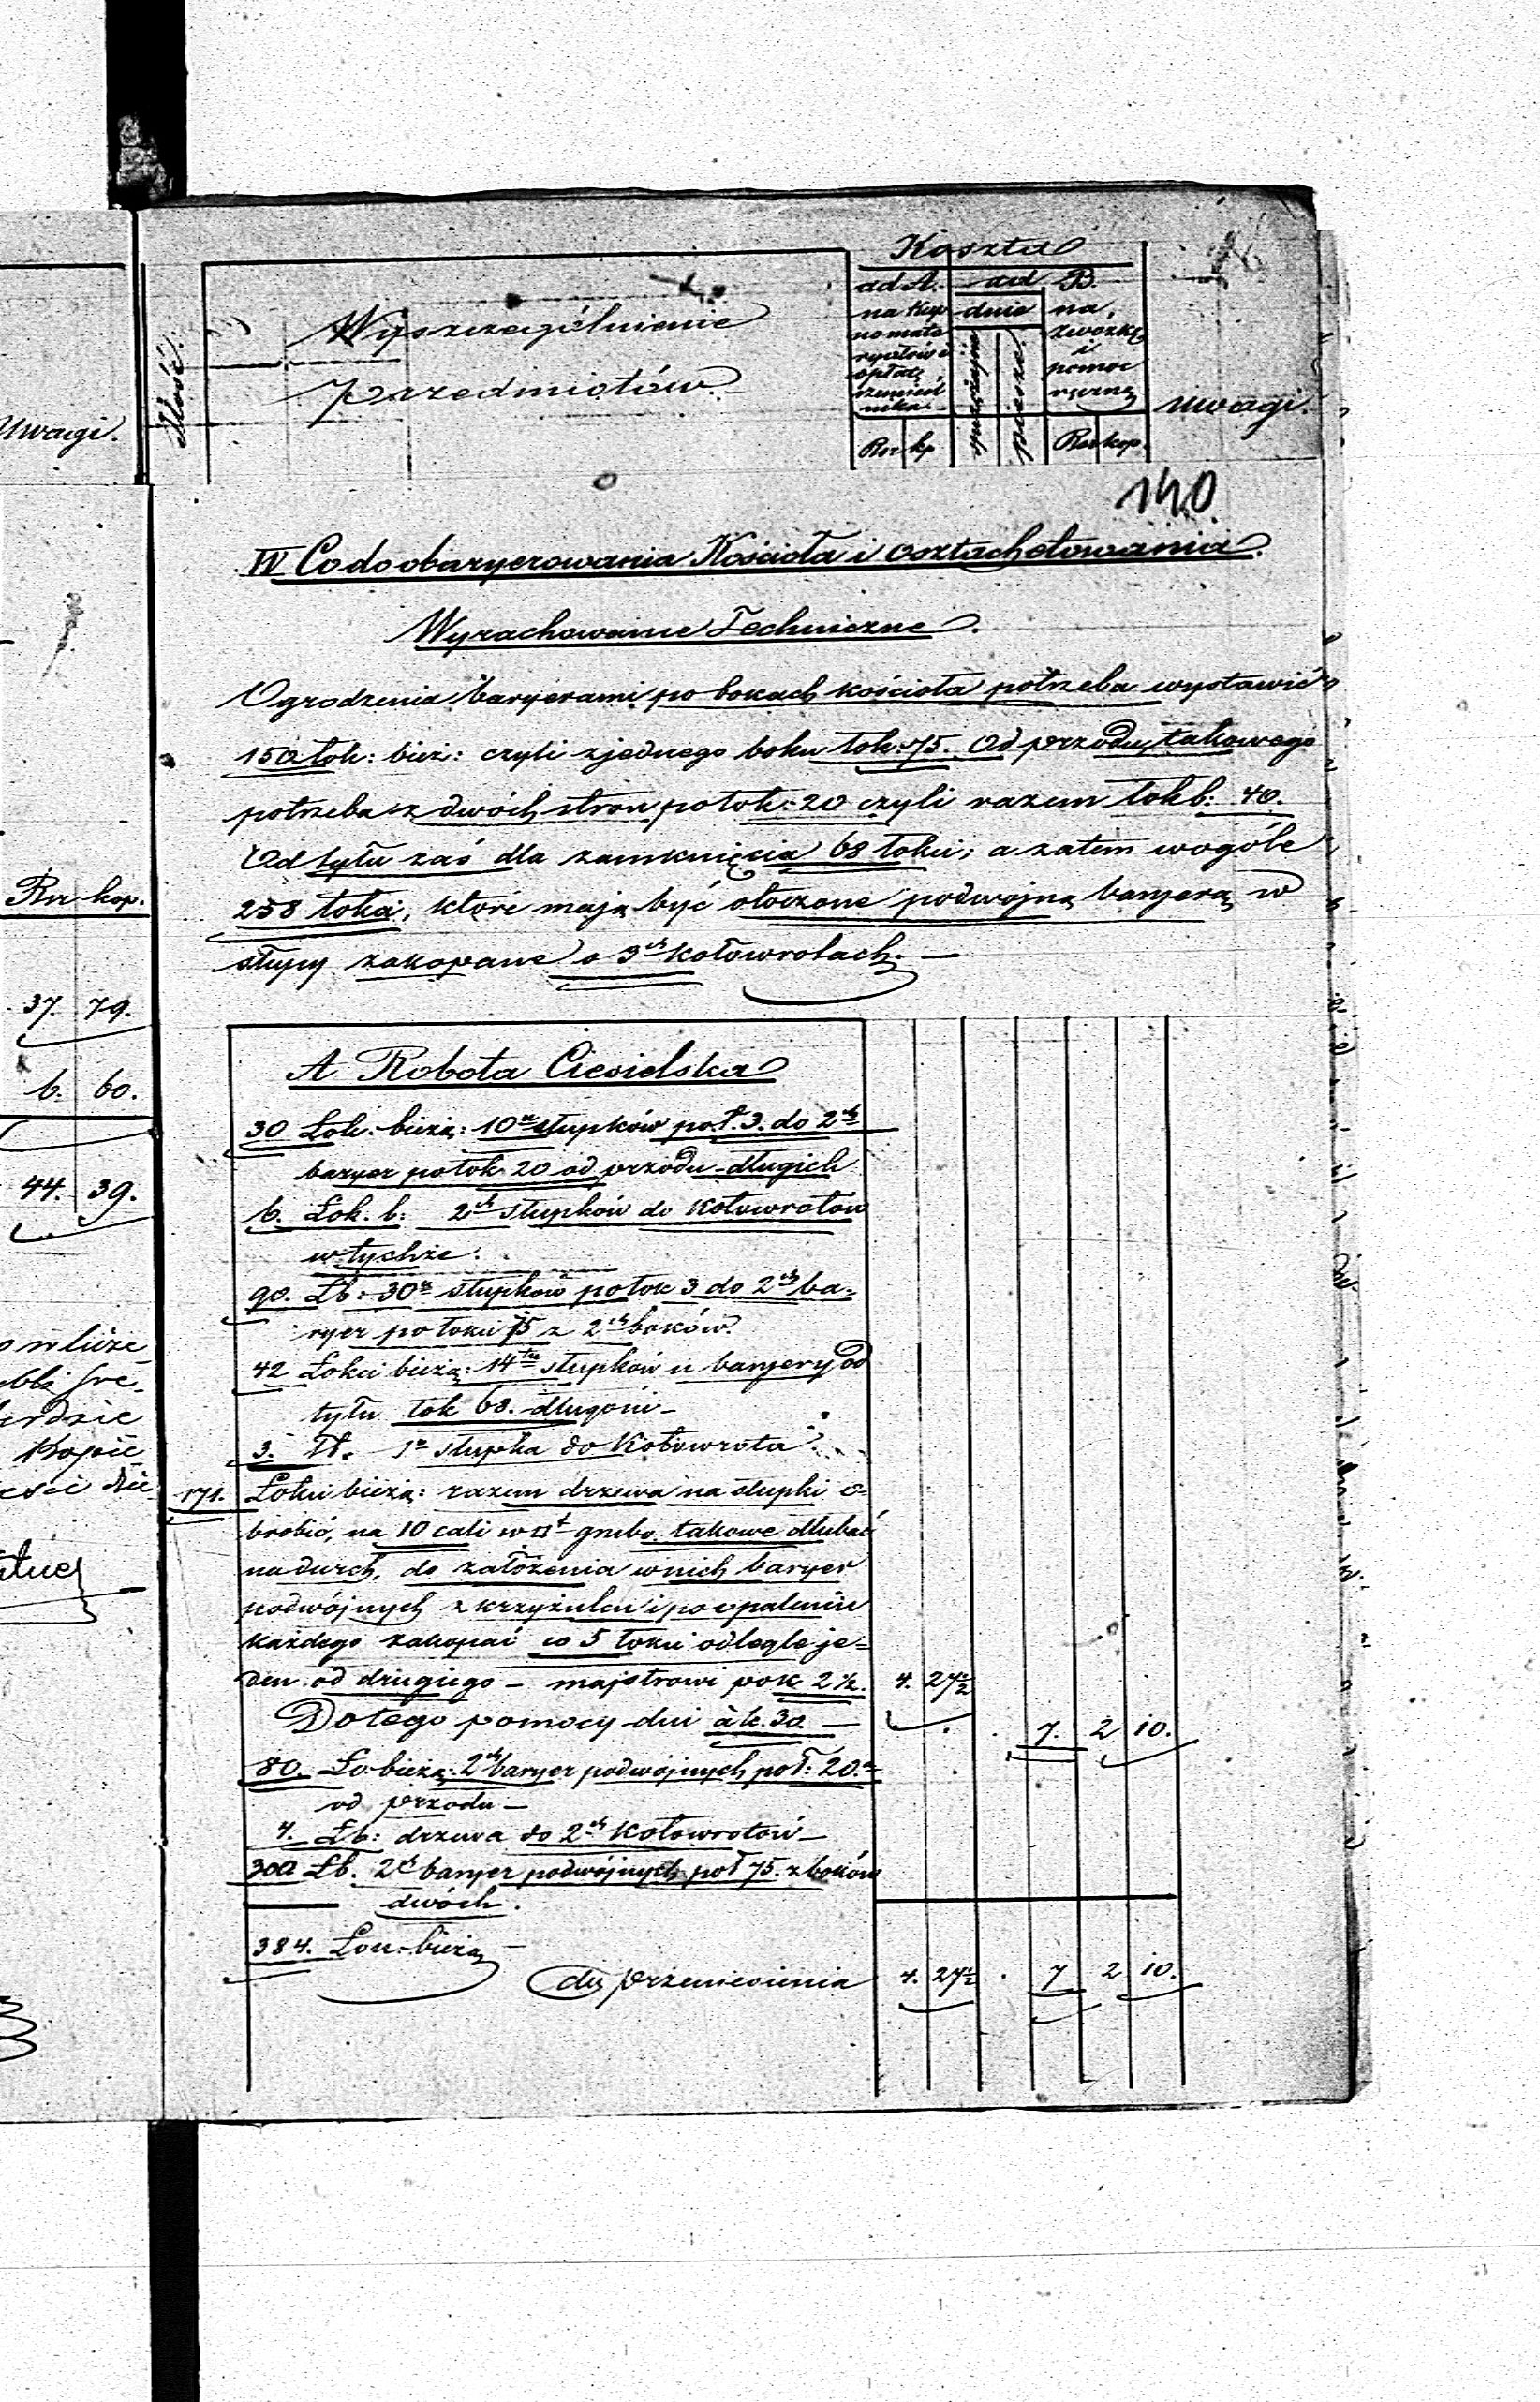 Uwagi.
Rsr kop.
37. 79.
6. 60.
44. 39.
Ilość.
Wyszczególnienie
Przedmiotów.
Koszta
ad A. ad B.
na kup
no mate
ryałów i
opłatę
rzemieśl
nika.
dnie
sprzężajne
piesze
na
zwózkę
i
pomoc
ręczną
Rsr kp
Rsr kop.
Uwagi.
140
IV Co do obaryerowania Kościoła i osztachetowania.
Wyrachowanie Techniczne.
Ogrodzenia baryerami po bokach kościoła potrzeba wystawić
150 łok: bież: czyli z jednego boku łok: 75. Od przodu takowego
potrzeba z dwóch stron po łok: 20 czyli razem łok b: 40.
Od tyłu zaś dla zamknięcia 68 łokci; a zatem wogóle
258 łokci, które mają być otoczone podwójną baryerą w
słupy zakopane o 3ch kołowrotach. —
A Robota Ciesielska
30 Łok: bieżą: 10u słupków po ł. 3. do 2ch
baryer po łok 20 od przodu długich
6. Łok. b: 2ch słupków do Kołowrotów
w tychże.
90. Łb: 30u słupków po łok 3 do 2ch ba=
ryer po łokci 75 z 2ch boków.
42 Łokci bieżą: 14tu słupków u baryery od
tyłu łok 68. długości —
3. Ł. 1o słupka do Kołowrota.
171. Łokci bieżą: razem drzewa na słupki o=
brobić, na 10 cali w □t grubo, takowe dłubać
na durch, do założenia w nich baryer
podwójnych z krzyżulcu i po opaleniu
każdego zakopać co 5 łokci odległe je=
den od drugiego — majstrowi po k 2½. 4. 27½
Do tego pomocy dni à k. 30 — 7. 2 10.
80. Ło: bieżą: 2ch baryer podwójnych po ł: 20.
od przodu —
4. Łb: drzewa do 2ch Kołowrotów —
300 Łb. 2ch baryer podwójnych po ł 75. z boków
dwóch.
384. Łok: bieżą
do przeniesienia 4. 27½ . 7 2 10.